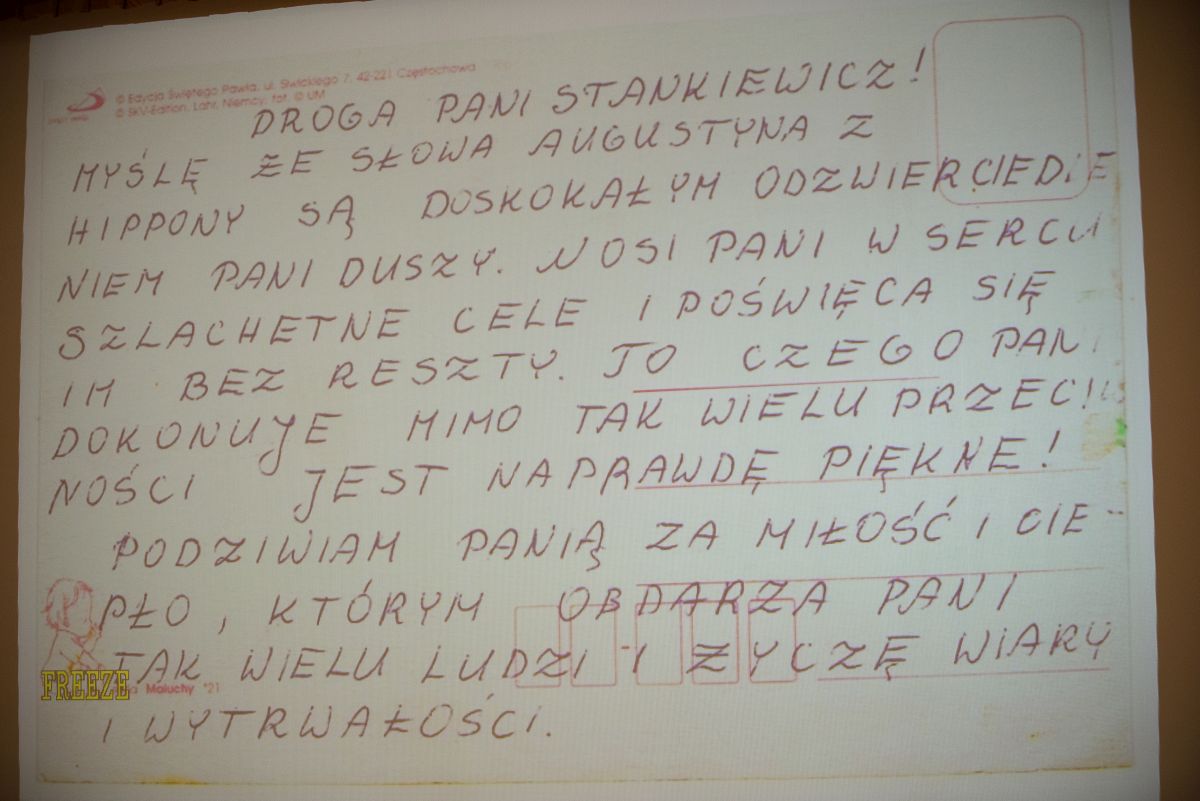 © Edycja Świętego Pawła, ul. Siwickiego 7, 42-221 Częstochowa
© SKV-Edition, Lahr, Niemcy, fot. © UM
DROGA PANI STANKIEWICZ!
MYŚLĘ ŻE SŁOWA AUGUSTYNA Z
HIPPONY SĄ DOSKOKAŁYM ODZWIERCIEDLE
NIEM PANI DUSZY. NOSI PANI W SERCU
SZLACHETNE CELE I POŚWIĘCA SIĘ
IM BEZ RESZTY. TO CZEGO PANI
DOKONUJE MIMO TAK WIELU PRZECIW
NOŚCI JEST NAPRAWDĘ PIĘKNE!
PODZIWIAM PANIĄ ZA MIŁOŚĆ I CIE-
PŁO, KTÓRYM OBDARZA PANI
TAK WIELU LUDZI I ŻYCZĘ WIARY
FREEZE Maluchy '21
I WYTRWAŁOŚCI.